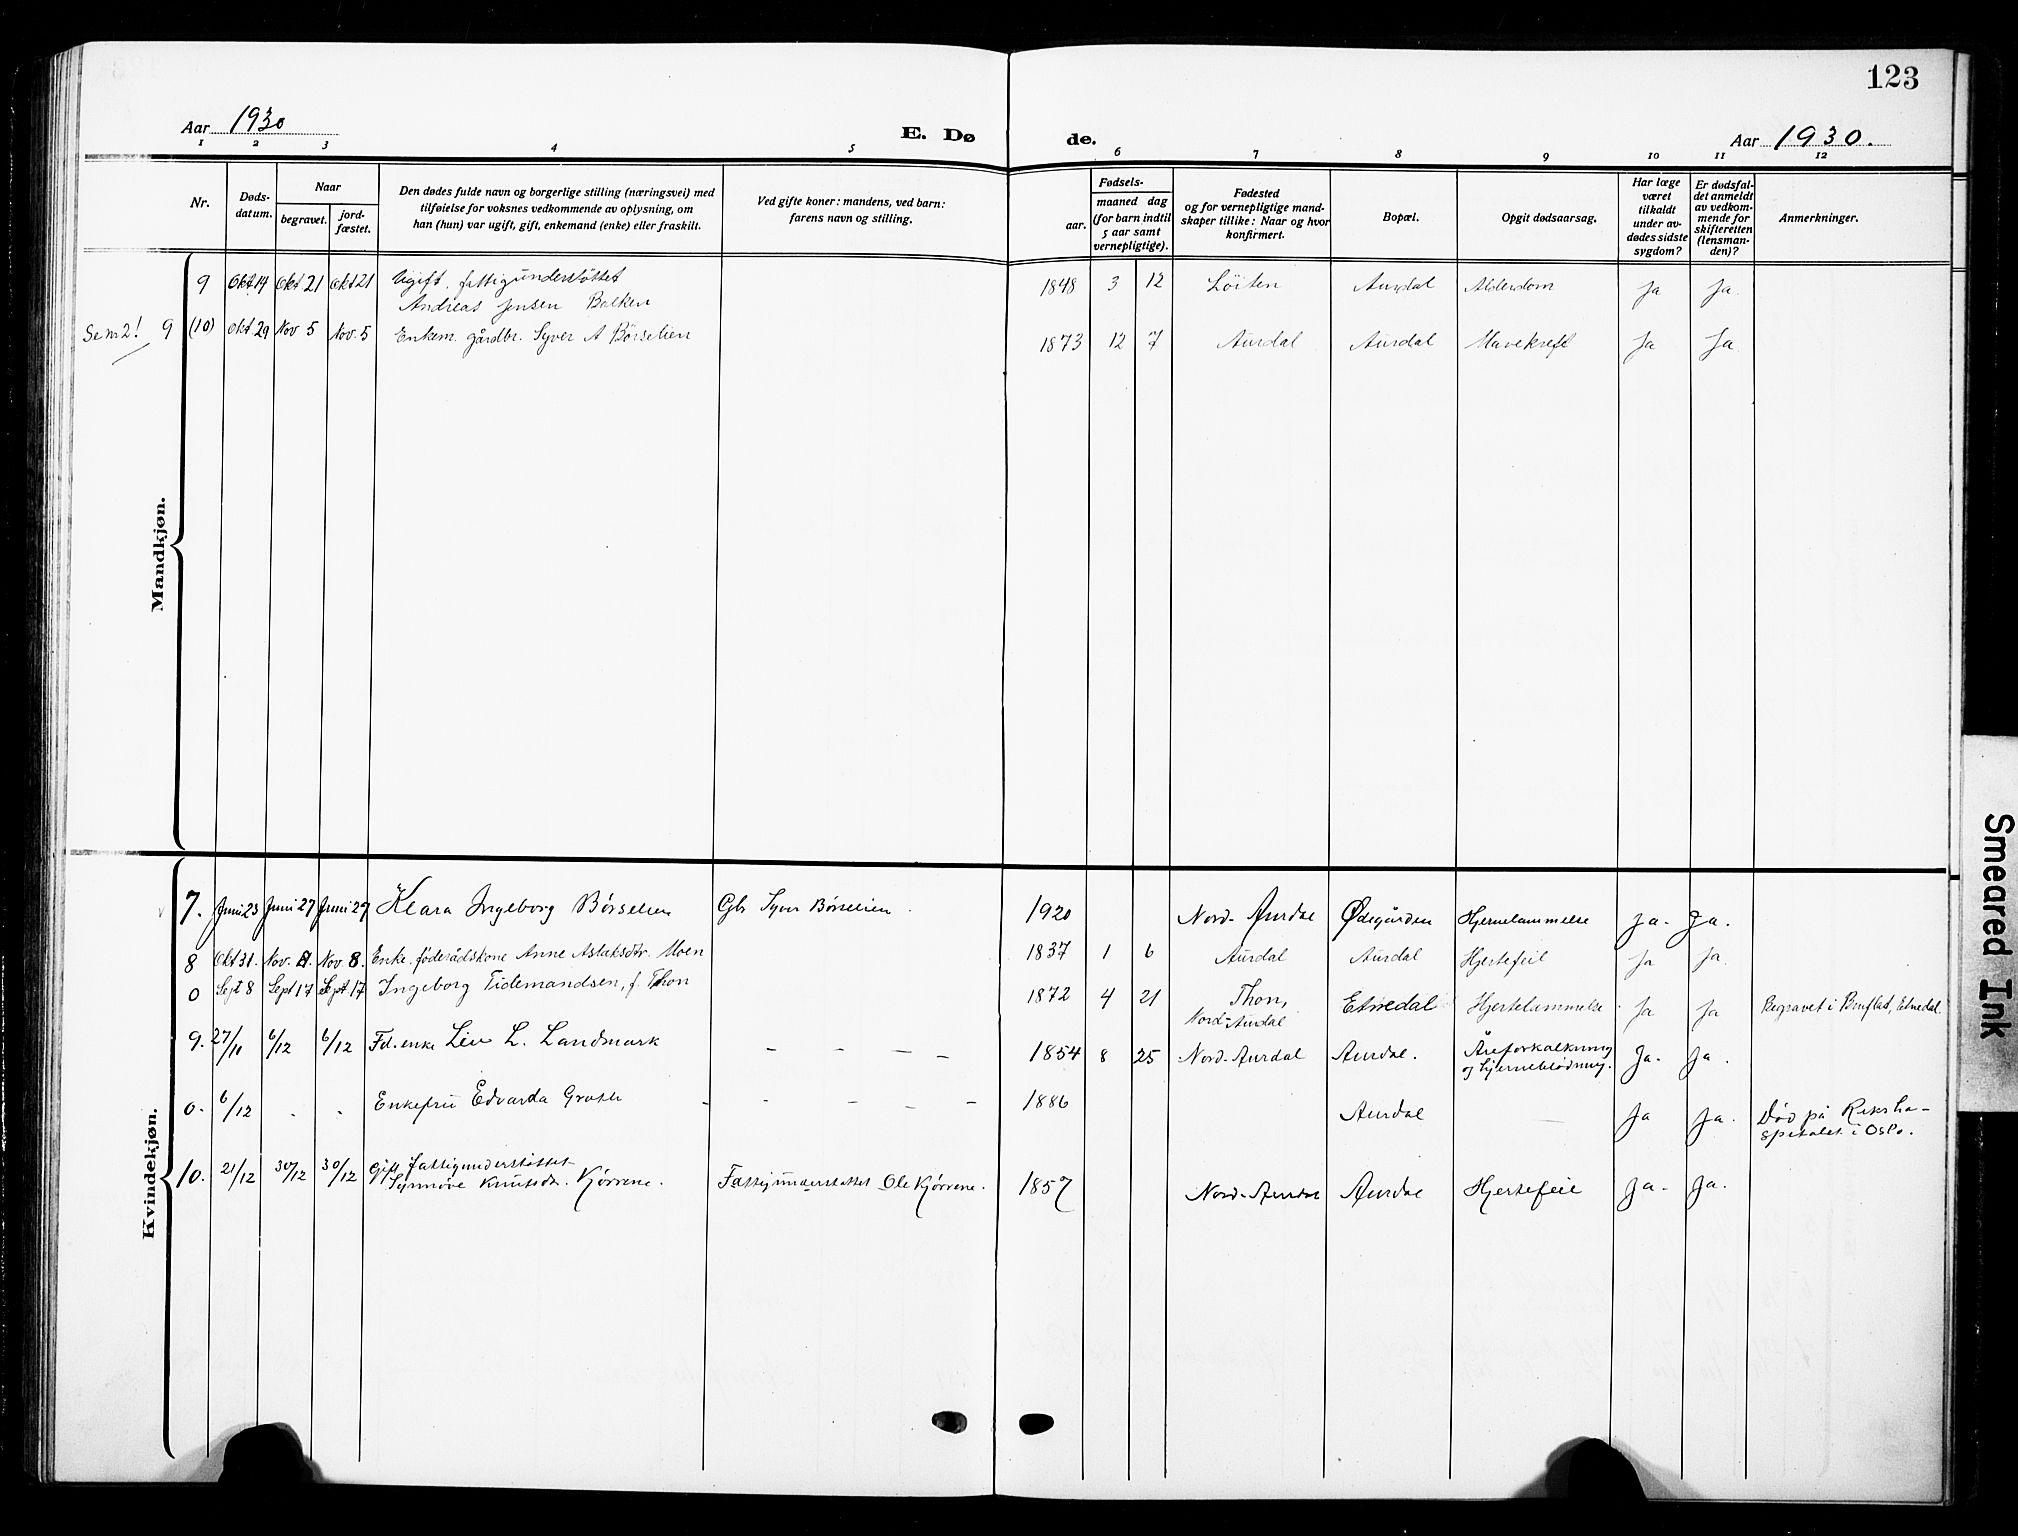 123
Aar 1930
E. Dø
de.
Aar 1930.
1 2 3 4 5 6 7 8 9 10 11 12
Nr.
Døds-
datum.
Naar
begravet.
jord-
fæstet.
Den dødes fulde navn og borgerlige stilling (næringsvei) med
tilføielse for voksnes vedkommende av oplysning, om
han (hun) var ugift, gift, enkemand (enke) eller fraskilt.
Ved gifte koner: mandens, ved barn:
farens navn og stilling.
Fødsels-
aar.
maaned dag
(for barn indtil
5 aar samt
vernepligtige).
Fødested
og for vernepligtige mand-
skaper tillike: Naar og hvor
konfirmert.
Bopæl.
Opgit dødsaarsag.
Har læge
været
tilkaldt
under av-
dødes sidste
sygdom?
Er dødsfal-
det anmeldt
av vedkom-
mende for
skifteretten
(lensman-
den)?
Anmerkninger.
Mandkjøn.
9 Okt 14 Okt 21 Okt 21 Ugift, fattigunderstøttet
Andreas Jensen Bakken 1848 3 12 Löiten Aurdal Alderdom Ja Ja.
Se nr 2! 9 (10) Okt 29 Nov 5 Nov. 5 Enkem. gårdbr. Syver A Børselien 1873 12 7 Aurdal Aurdal Mavekreft Ja Ja
Kvindekjøn.
7. Juni 23 Juni 27 Juni 27 Klara Ingeborg Børselien Gbr Syver Børselien. 1920 Nord-Aurdal Ødegården Hjernelammelse Ja- Ja.
8 Okt 31. Nov. 8. Nov 8. Enke. føderådskone Anne Aslaksdtr. Moen 1837 1 6 Aurdal Aurdal Hjertefeil Ja Ja.
0 Sept 8 Sept 17 Sept. 17 Ingeborg Tidemandsen, f. Thon 1872 4 21 Thon,
Nord-Aurdal Etnedal Hjertelammelse Ja Ja Begravet i Bruflat, Etnedal.
9. 27/11 6/12 6/12 Fd. enke Liv L. Landmark - - - - 1854 8 25 Nord-Aurdal Aurdal. Åreforkalkning
og hjerneblødning. Ja- Ja.
0. 6/12 - - Enkefru Edvarda - - - - - 1886 Aurdal - Ja Ja. Død på Riksho-
spitalet i Oslo.
10. 21/12 30/12 30/12 Gift, fattigunderstøttet
Synnøve Knutsdtr. Kjørrene. Fattigunderstøttet Ole Kjørrene. 1857 Nord-Aurdal Aurdal Hjertefeil Ja- Ja.
Smeared Ink